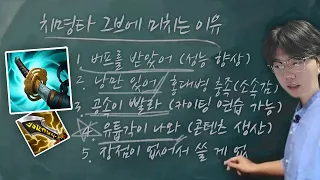 치명타 그브에 미치는 이유
1. 버프를 받았어 (성능 향상)
2. 낭만 있어
3. 공속이 빨라 (카이팅 연습 가능)
4. 유튭각이 나와 (콘텐츠 생산)
5. 장점이 없어서 쓸 게 없